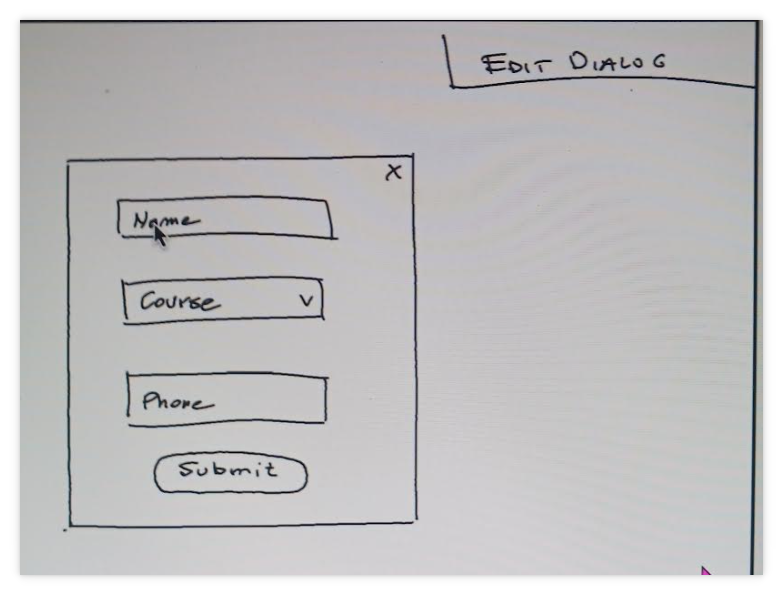 EDIT DIALOG
X
Name
Course V
Phone
Submit